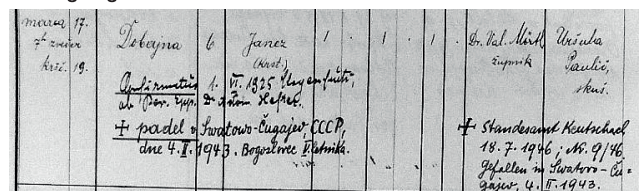 marca 17.
zvečer
kršč. 19.
Dobajna 6 Janez 1. 1. 1
(krst.)
Dr. Val. Mörtl
župnik
Uršula
Paulič,
Confirmatus 1. VI. 1925
ab Dr. Adam Hefter.
+ padel v Swatowo-Čugajev, CCCP,
dne 4. II. 1943. Bogoslovec V. letnika.
+ Standesamt Keutschach
18. 7. 1946, Nr. 9/46.
Gefallen in Swatovo-Ču-
gajev, 4. II. 1943.